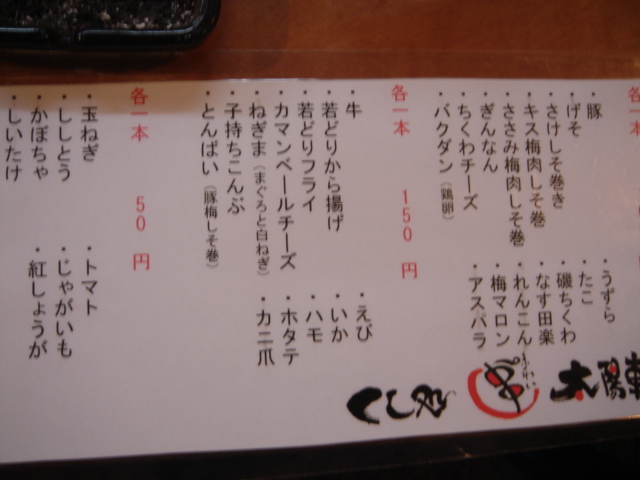 各一本
・豚
・げそ
・さけしそ巻き
・キス梅肉しそ巻
・ささみ梅肉しそ巻
・ぎんなん
・ちくわチーズ
・バクダン（鶏卵）
・うずら
・たこ
・磯ちくわ
・なす田楽
・れんこん
・梅マロン
・アスパラ
各一本 150円
・牛
・若どりから揚げ
・若どりフライ
・カマンベールチーズ
・ねぎま（まぐろと白ねぎ）
・子持ちこんぶ
・とんばい（豚梅しそ巻）
・えび
・いか
・ハモ
・ホタテ
・カニ爪
各一本 50円
・玉ねぎ
・ししとう
・かぼちゃ
・しいたけ
・トマト
・じゃがいも
・紅しょうが
太陽軒
味わい
串